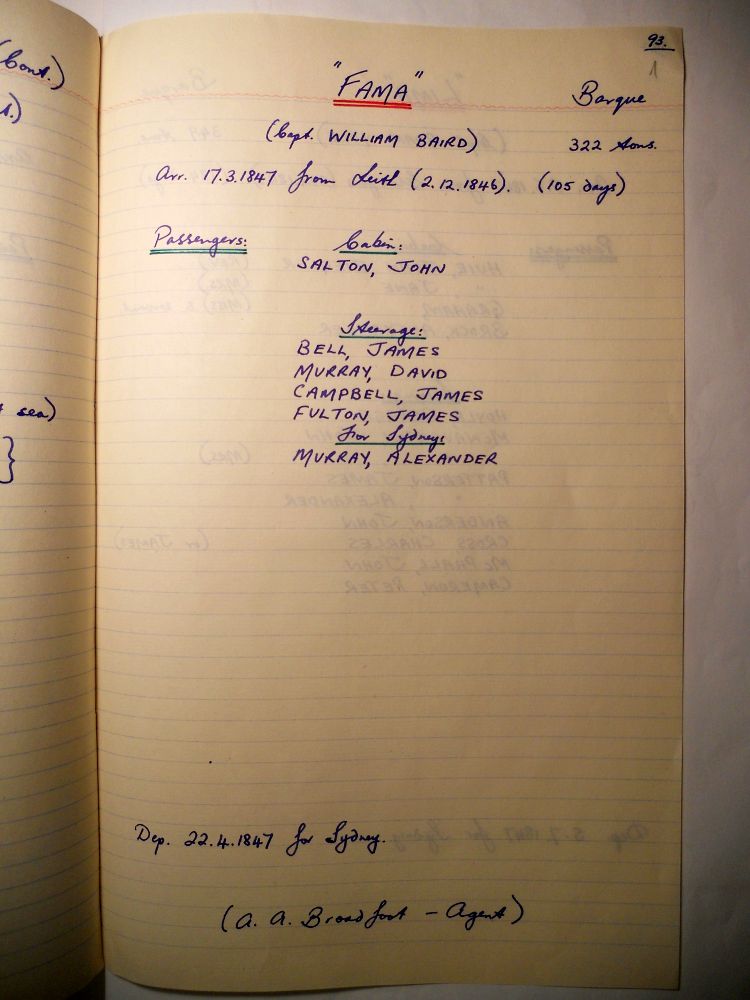 93.
1
"FAMA"
Barque
(Capt. WILLIAM BAIRD)
322 tons.
Arr. 17.3.1847 from Leith (2.12.1846). (105 days)
Passengers:
Cabin:
SALTON, JOHN
Steerage:
BELL, JAMES
MURRAY, DAVID
CAMPBELL, JAMES
FULTON, JAMES
For Sydney:
MURRAY, ALEXANDER
Dep. 22.4.1847 for Sydney.
(A. A. Broadfoot - Agent)
(Cont.)
sea)